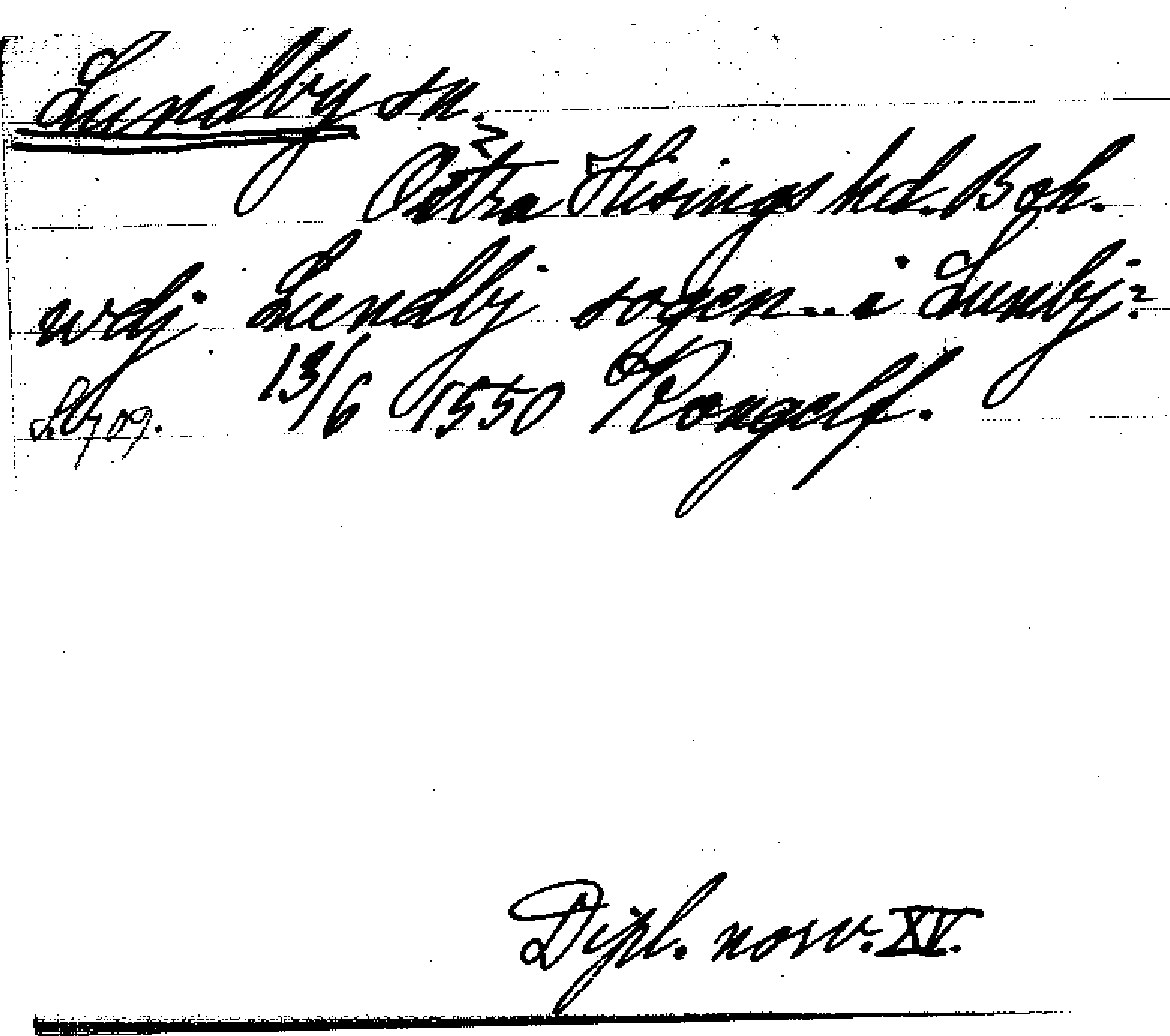 Lundby sn.
Östra Hisings hd. Boh.
wdj Lundbj sogen... i Lunbj:
13/6 1550 Kongelf.
Dipl. norv. XV.